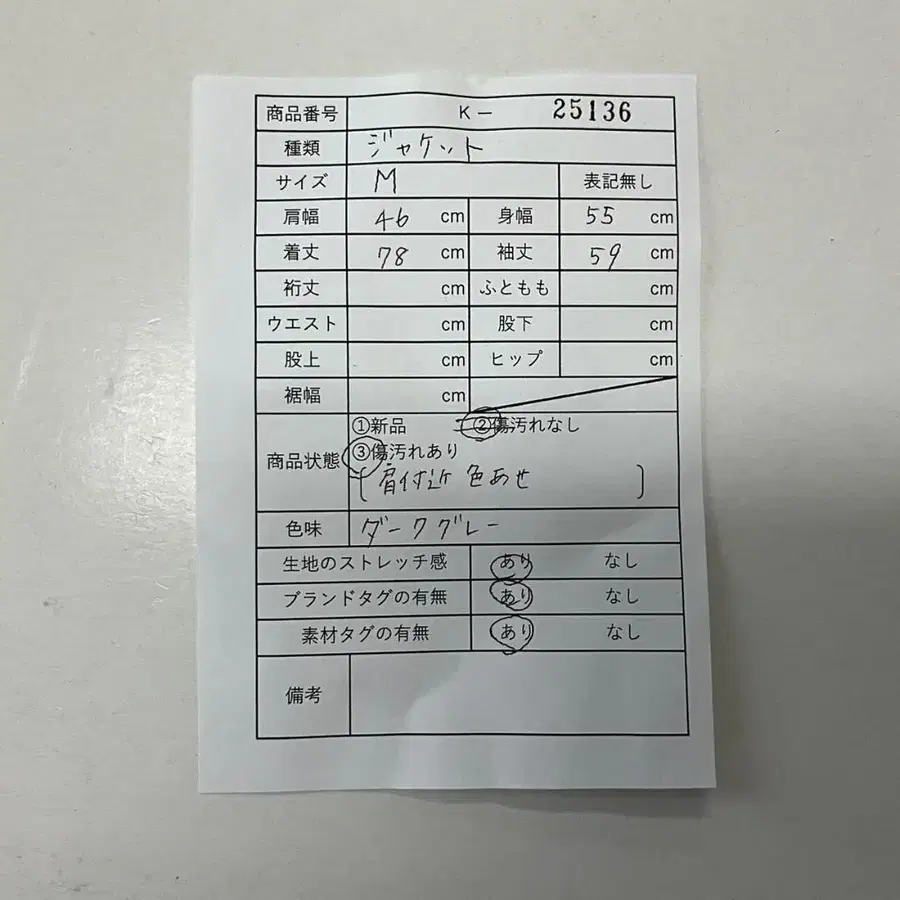 商品番号 K－ 25136
種類 ジャケット
サイズ M 表記無し
肩幅 46 cm 身幅 55 cm
着丈 78 cm 袖丈 59 cm
裄丈 cm ふともも cm
ウエスト cm 股下 cm
股上 cm ヒップ cm
裾幅 cm
商品状態 ①新品 ②傷汚れなし
③傷汚れあり
[肩付近 色あせ ]
色味 ダークグレー
生地のストレッチ感 あり なし
ブランドタグの有無 あり なし
素材タグの有無 あり なし
備考